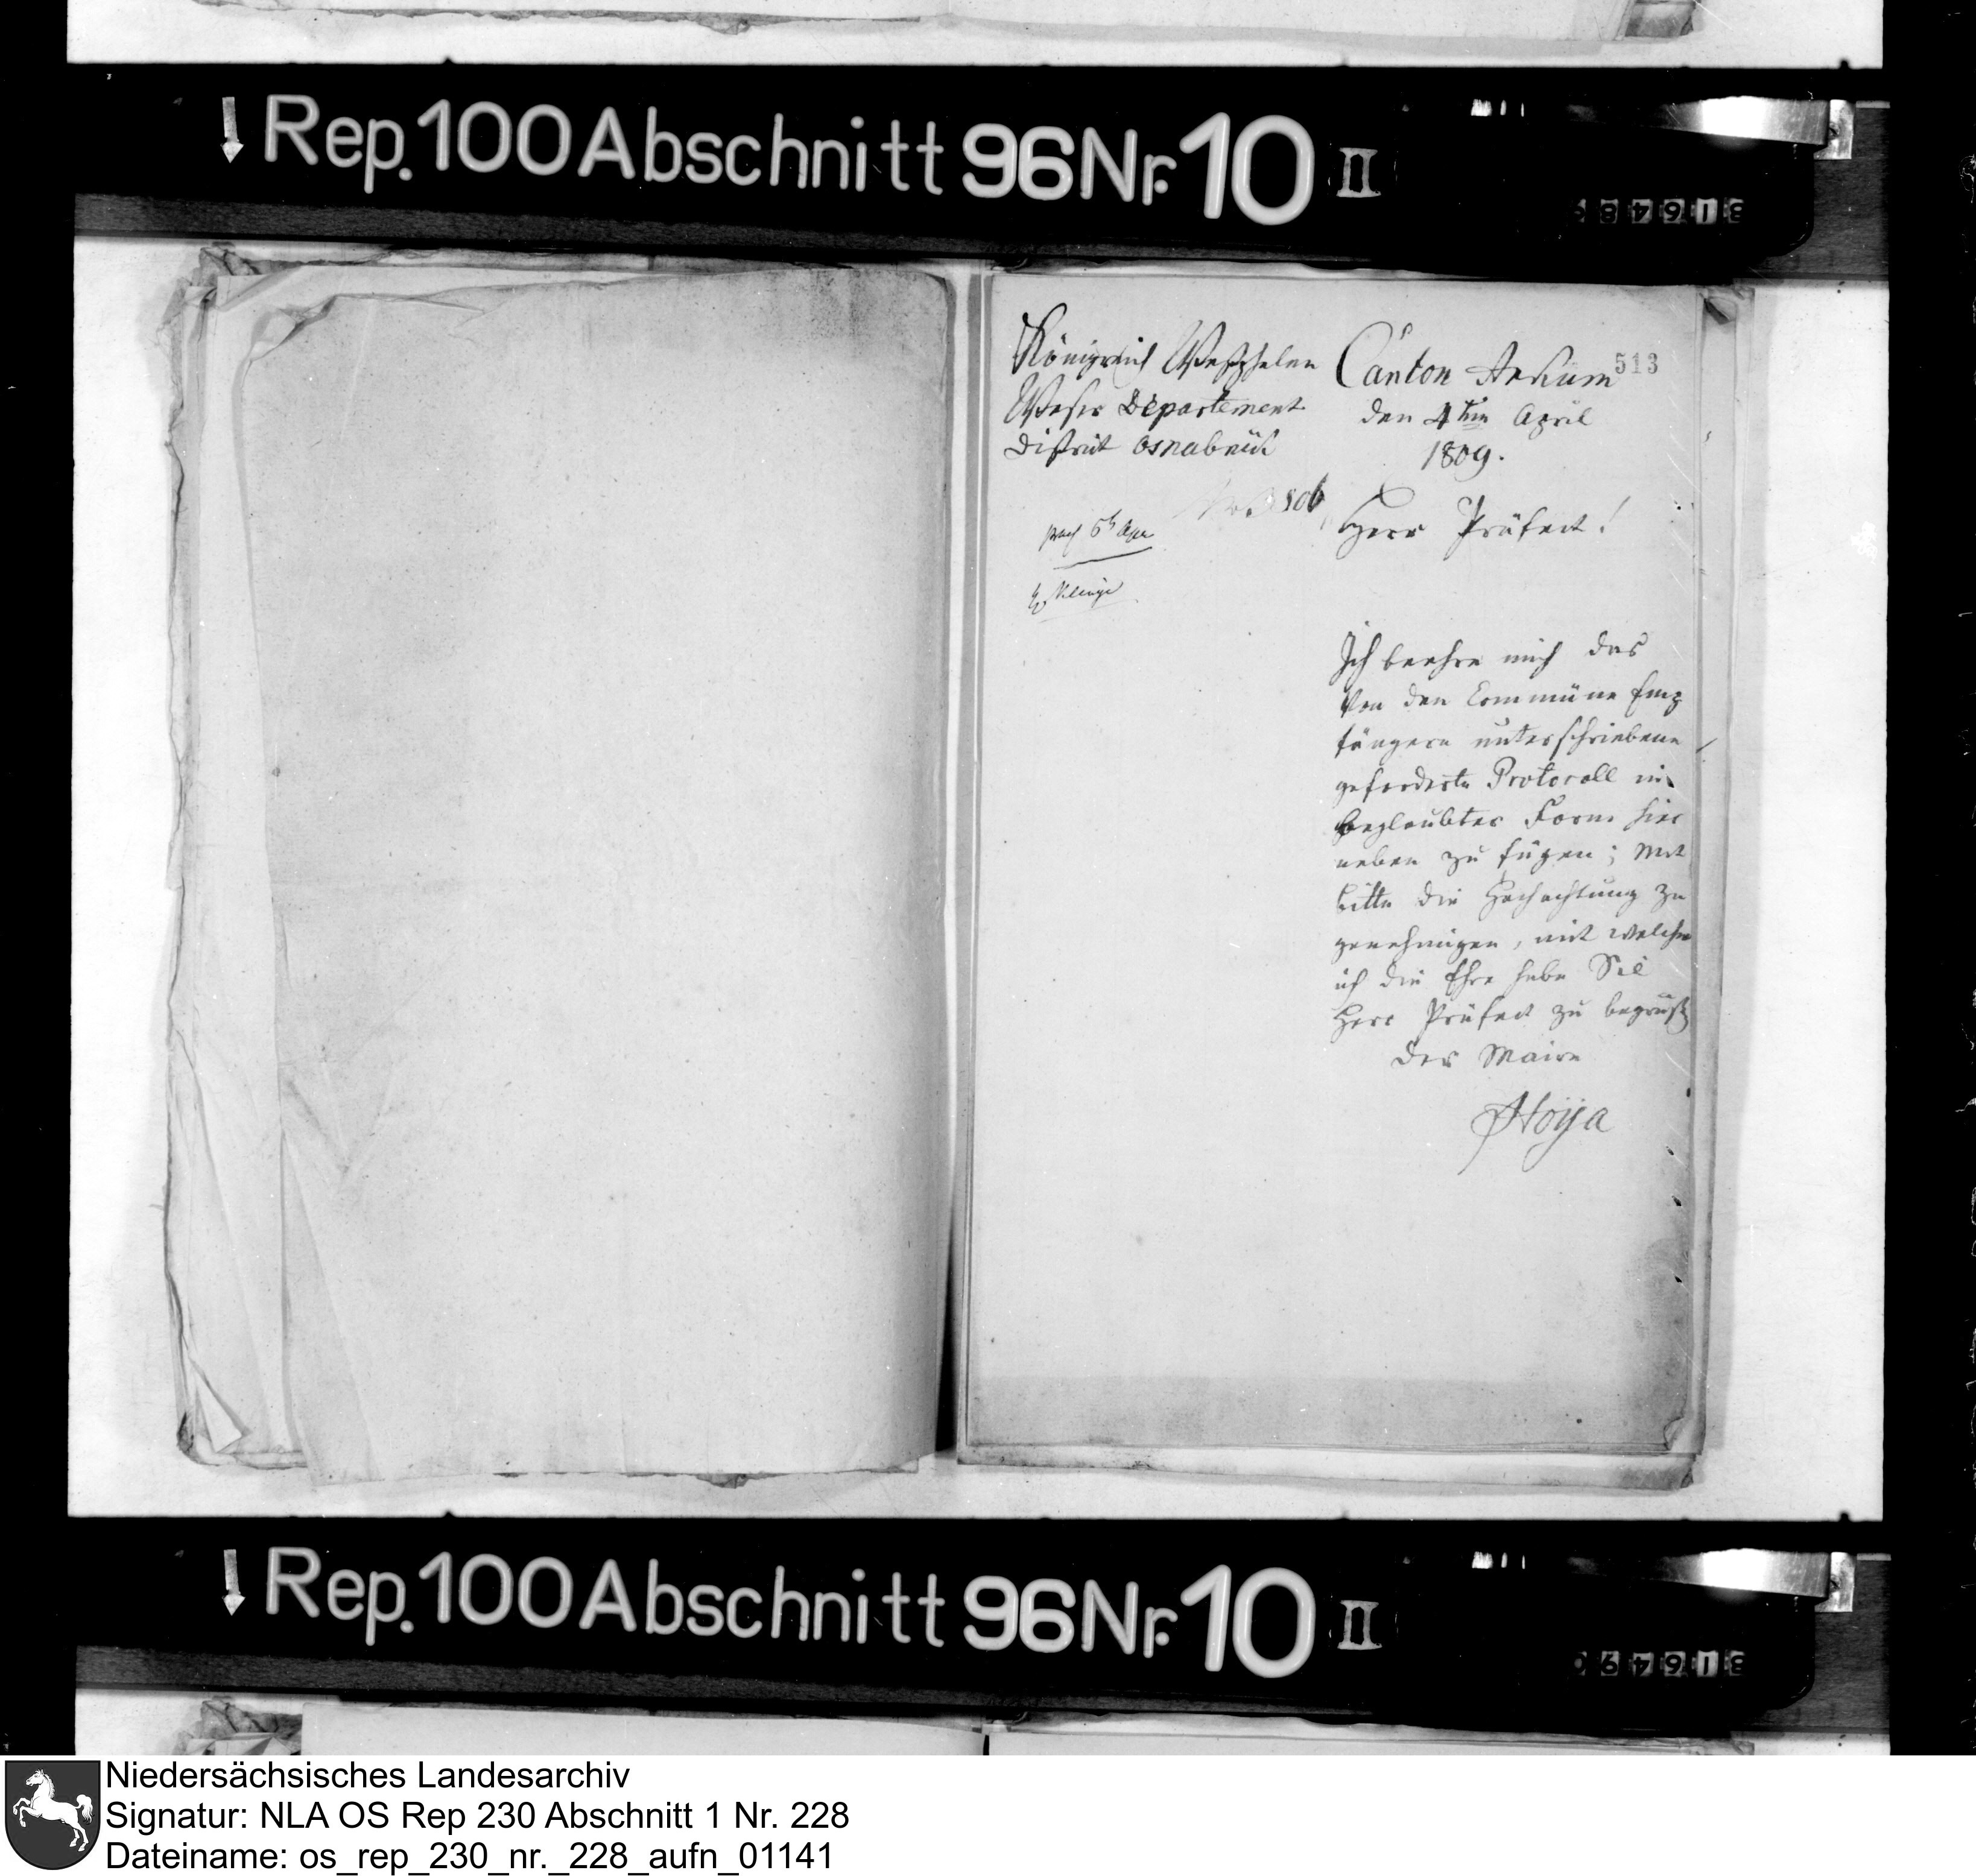 Rep. 100 Abschnitt 96 Nr. 10 II
Königreich Westphalen
Weser Departement
District Osnabrück
Canton Ankum
513
den 4ten April
1809.
506
Herr Präfect!
Ich beehre mich das
von den Commüne Emp
fängern unterschriebene
geforderte Protocoll in
beglaubter Form hier
neben zu fügen; mit
bitte die Hochachtung zu
genehmigen, mit welcher
ich die Ehre habe Sie
Herr Präfect zu begrüß
Der Maire
Hoija
Rep. 100 Abschnitt 96 Nr. 10 II
Niedersächsisches Landesarchiv
Signatur: NLA OS Rep 230 Abschnitt 1 Nr. 228
Dateiname: os_rep_230_nr._228_aufn_01141